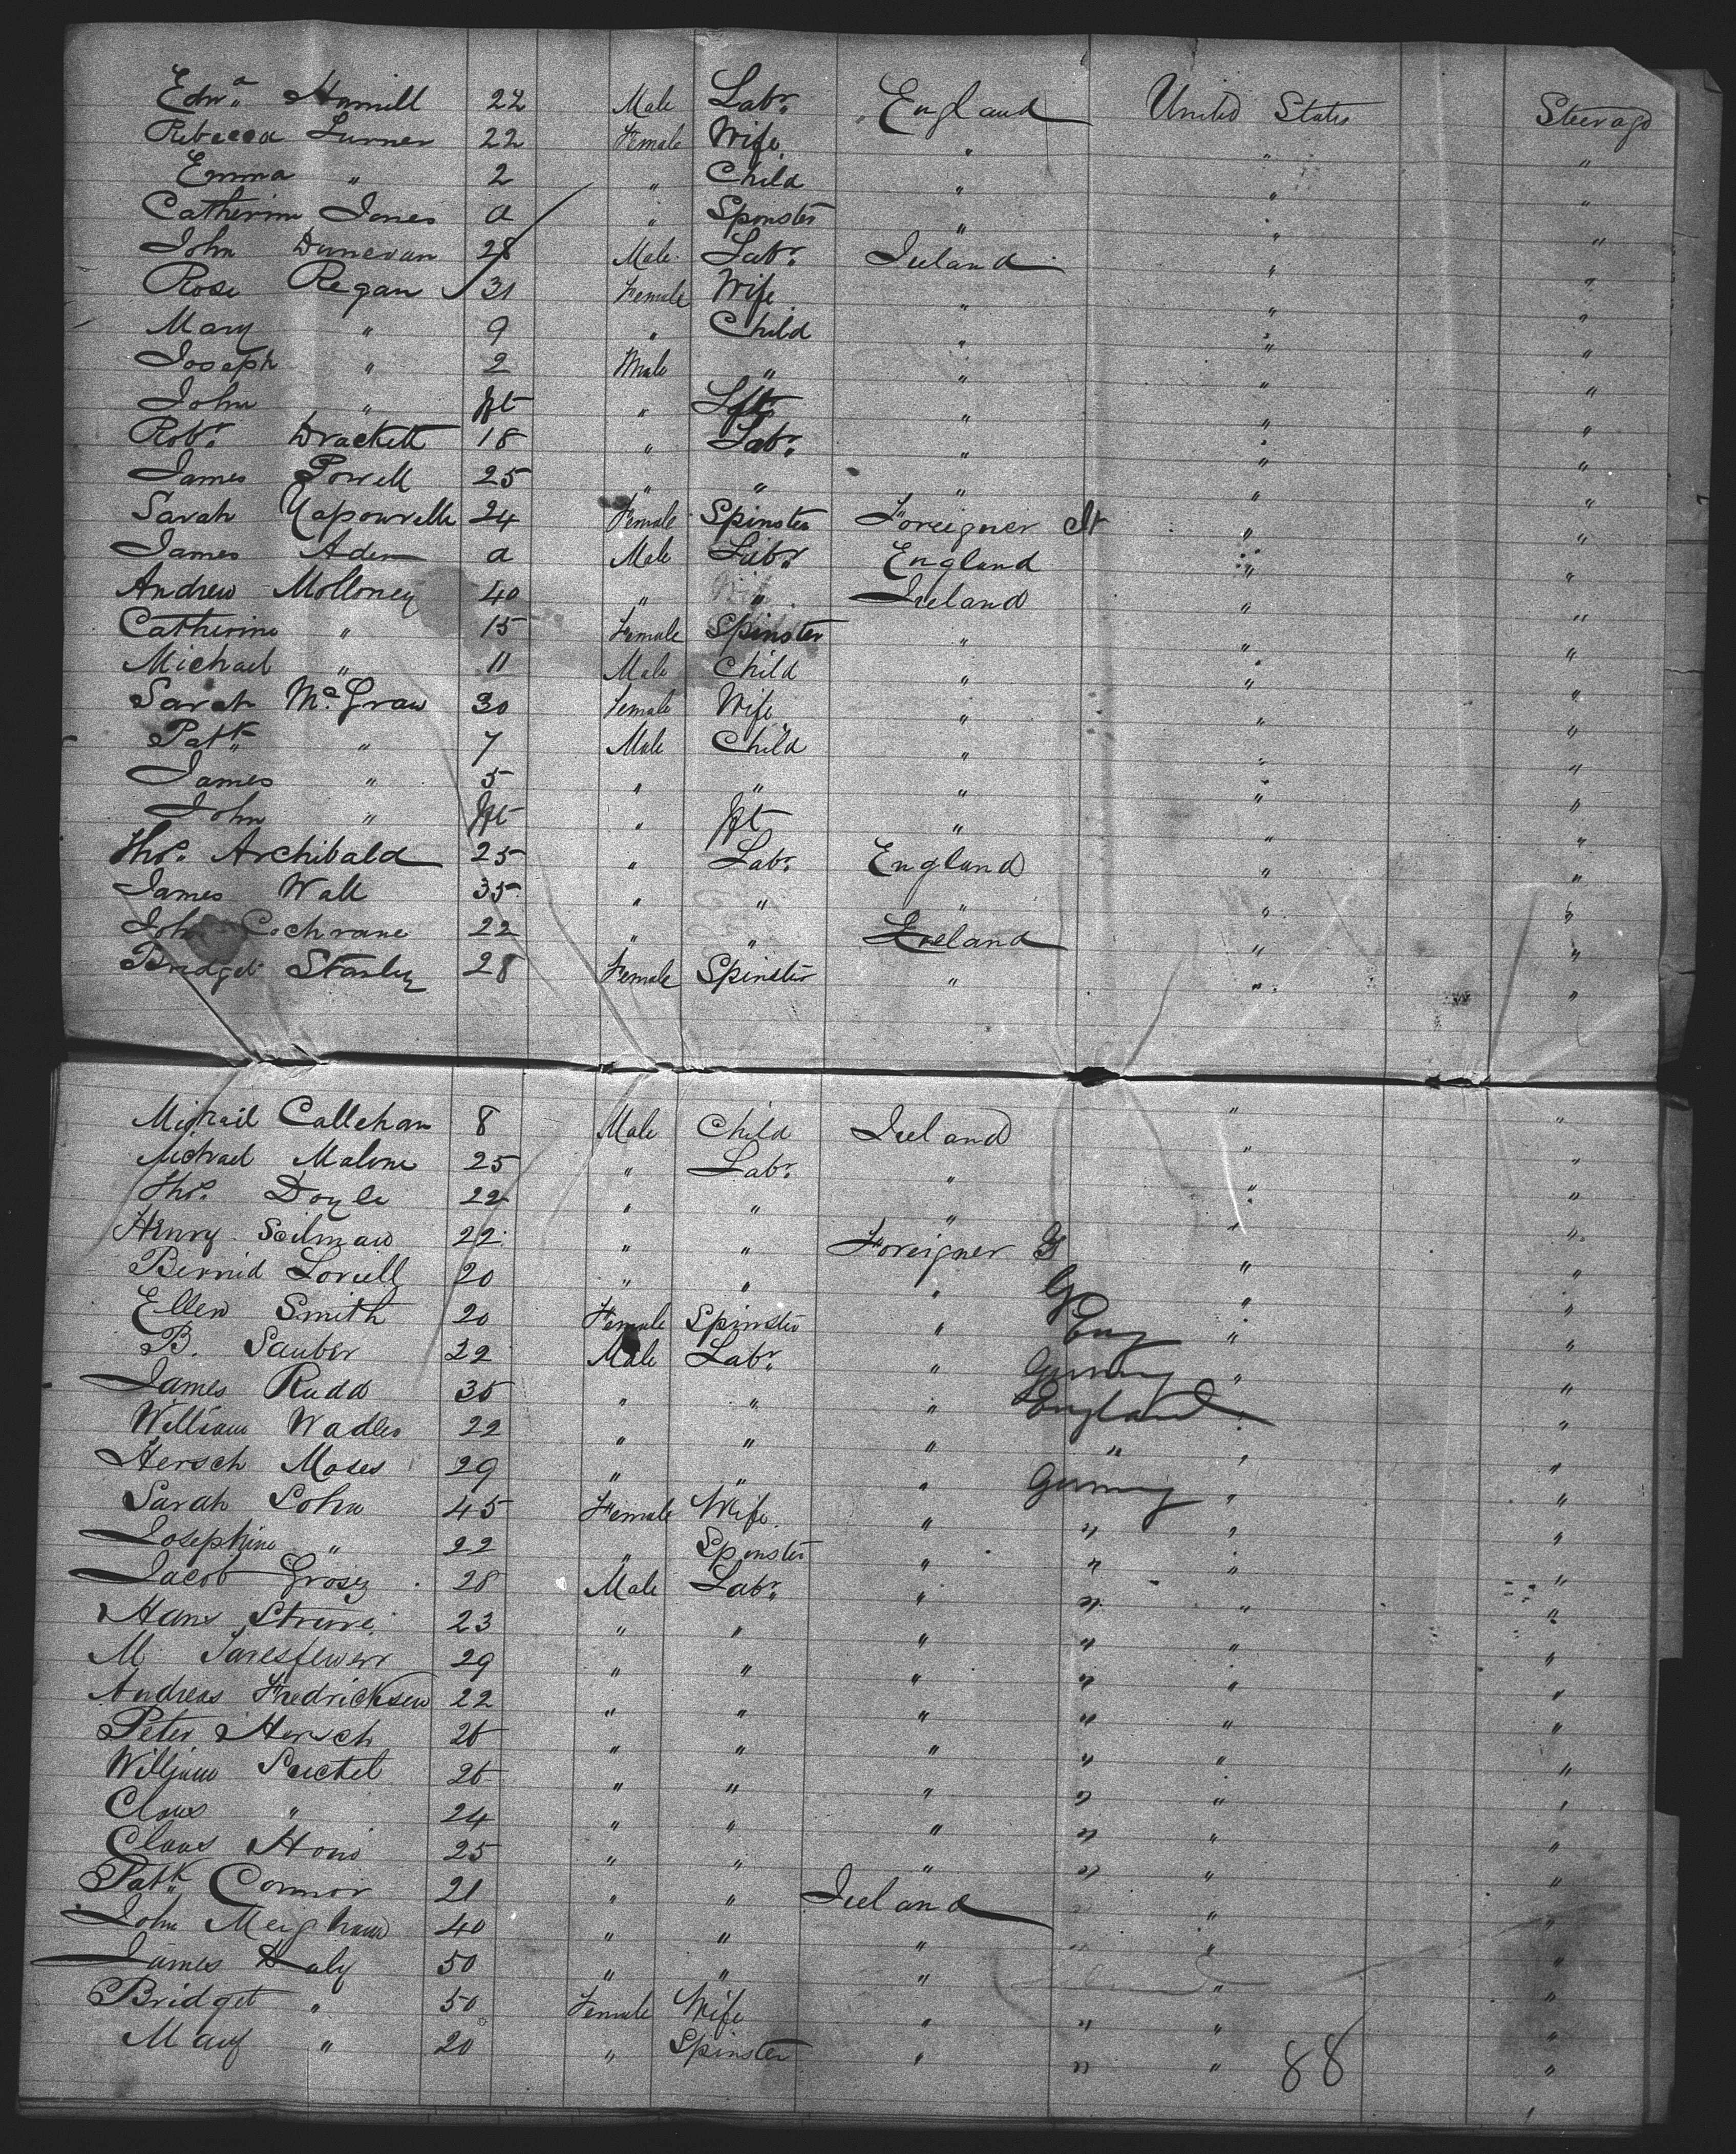 Edwd Hamill 22 Male Labr. England United States Steerage
Rebecca Turner 22 Female Wife " " "
Emma " 2 " Child " " "
Catherine Jones a " Spinster " " "
John Dunevan 28 Male Labr. Ireland " "
Rose Regan 31 Female Wife " " "
Mary " 9 " Child " " "
Joseph " 2 Male " " " "
John " Inft " " " "
Robt. Brackett 18 " Labr. " " "
James Powell 25 " " " " "
Sarah 24 Female Spinster Foreigner It " "
James Aden a Male Labr. England " "
Andrew Molloney 40 " " Ireland " "
Catherine " 15 Female Spinster " " "
Michael " 11 Male Child " " "
Sarah McGraw 30 Female Wife " " "
Patk " 7 Male Child " " "
James " 5 " " " " "
John " Inft " Inft " " "
Thos. Archibald 25 " Labr. England " "
James Wall 35 " " " " "
John Cochrane 22 " " Ireland " "
Bridget Stanley 28 Female Spinster " " "
Michail Callehan 8 Male Child Ireland " "
Michael Malone 25 " Labr. " " "
Thos. Doyle 22 " " " " "
Henry 22 " " Foreigner G " "
Bernid Lovell 20 " " " G " "
Ellen Smith 20 Female Spinster " Eng " "
B. Sauber 22 Male Labr. " Germy " "
James Rudd 35 " " " England " "
William Wadles 22 " " " " " "
Hersch Moses 29 " " " Germny " "
Sarah Cohn 45 Female Wife " " " "
Josephine " 22 " Spinster " " " "
Jacob Grosz 28 Male Labr. " " " "
Hans Struve 23 " " " " " "
M. 29 " " " " " "
Andreas Fredricksen 22 " " " " " "
Peter Hersch 26 " " " " " "
William 26 " " " " " "
Claus " 24 " " " " " "
Claus 25 " " " " " "
Patk Connor 21 " " Ireland " " "
John Meighan 40 " " " " " "
James Daly 50 " " " " "
Bridget " 50 Female Wife " " " "
Mary " 20 " Spinster " " " "
88